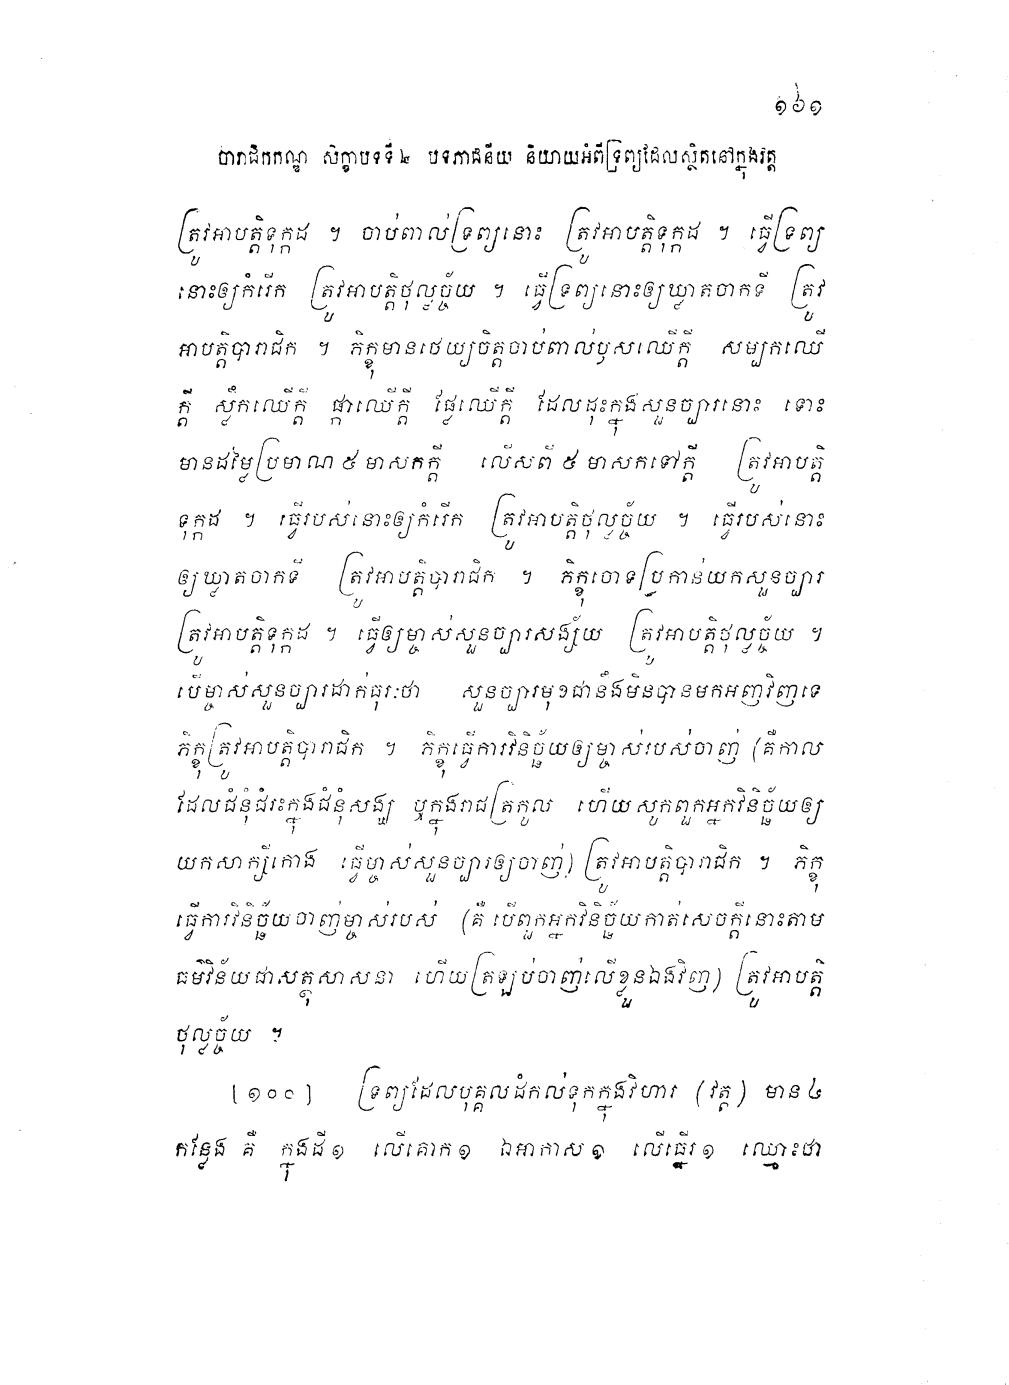 ១៦១
បារាជិកកណ្ឌ សិក្ខាបទទី២ បទភាជនីយ និយាយអំពីទ្រព្យដែលស្ថិតនៅក្នុងវត្ត
ត្រូវអាបត្តិទុក្កដ ។ ចាប់ពាល់ទ្រព្យនោះ ត្រូវអាបត្តិទុក្កដ ។ ធ្វើទ្រព្យ
នោះឲ្យកំរើក ត្រូវអាបត្តិថុល្លច្ច័យ ។ ធ្វើទ្រព្យនោះឲ្យឃ្លាតចាកទី ត្រូវ
អាបត្តិបារាជិក ។ ភិក្ខុមានថេយ្យចិត្តចាប់ពាល់ឫសឈើក្តី សម្បកឈើ
ក្តី ស្លឹកឈើក្តី ផ្កាឈើក្តី ផ្លែឈើក្តី ដែលដុះក្នុងសួនច្បារនោះ ទោះ
មានដម្លៃប្រមាណ ៥ មាសកក្តី លើសពី ៥ មាសកទៅក្តី ត្រូវអាបត្តិ
ទុក្កដ ។ ធ្វើរបស់នោះឲ្យកំរើក ត្រូវអាបត្តិថុល្លច្ច័យ ។ ធ្វើរបស់នោះ
ឲ្យឃ្លាតចាកទី ត្រូវអាបត្តិបារាជិក ។ ភិក្ខុចោទប្រកាន់យកសួនច្បារ
ត្រូវអាបត្តិទុក្កដ ។ ធ្វើឲ្យម្ចាស់សួនច្បារសង្ស័យ ត្រូវអាបត្តិថុល្លច្ច័យ ។
បើម្ចាស់សួនច្បារដាក់ធុរៈថា សួនច្បារមុខជានឹងមិនបានមកអញវិញទេ
ភិក្ខុត្រូវអាបត្តិបារាជិក ។ ភិក្ខុធ្វើការវិនិច្ឆ័យឲ្យម្ចាស់របស់ចាញ់ (គឺកាល
ដែលជំនុំជំរះក្នុងជំនុំសង្ឃ ឬក្នុងរាជត្រកូល ហើយសូកពួកអ្នកវិនិច្ឆ័យឲ្យ
យកសាក្សីកោង ធ្វើម្ចាស់សួនច្បារឲ្យចាញ់) ត្រូវអាបត្តិបារាជិក ។ ភិក្ខុ
ធ្វើការវិនិច្ឆ័យចាញ់ម្ចាស់របស់ (គឺ បើពួកអ្នកវិនិច្ឆ័យកាត់សេចក្តីនោះតាម
ធម៌វិន័យជាសត្ថុសាសនា ហើយត្រឡប់ចាញ់លើខ្លួនឯងវិញ) ត្រូវអាបត្តិ
ថុល្លច្ច័យ ។
[១០០] ទ្រព្យដែលបុគ្គលដំកល់ទុកក្នុងវិហារ (វត្ត) មាន ៤
កន្លែង គឺ ក្នុងដី១ លើគោក១ ឯអាកាស១ លើធ្នើរ១ ឈ្មោះថា